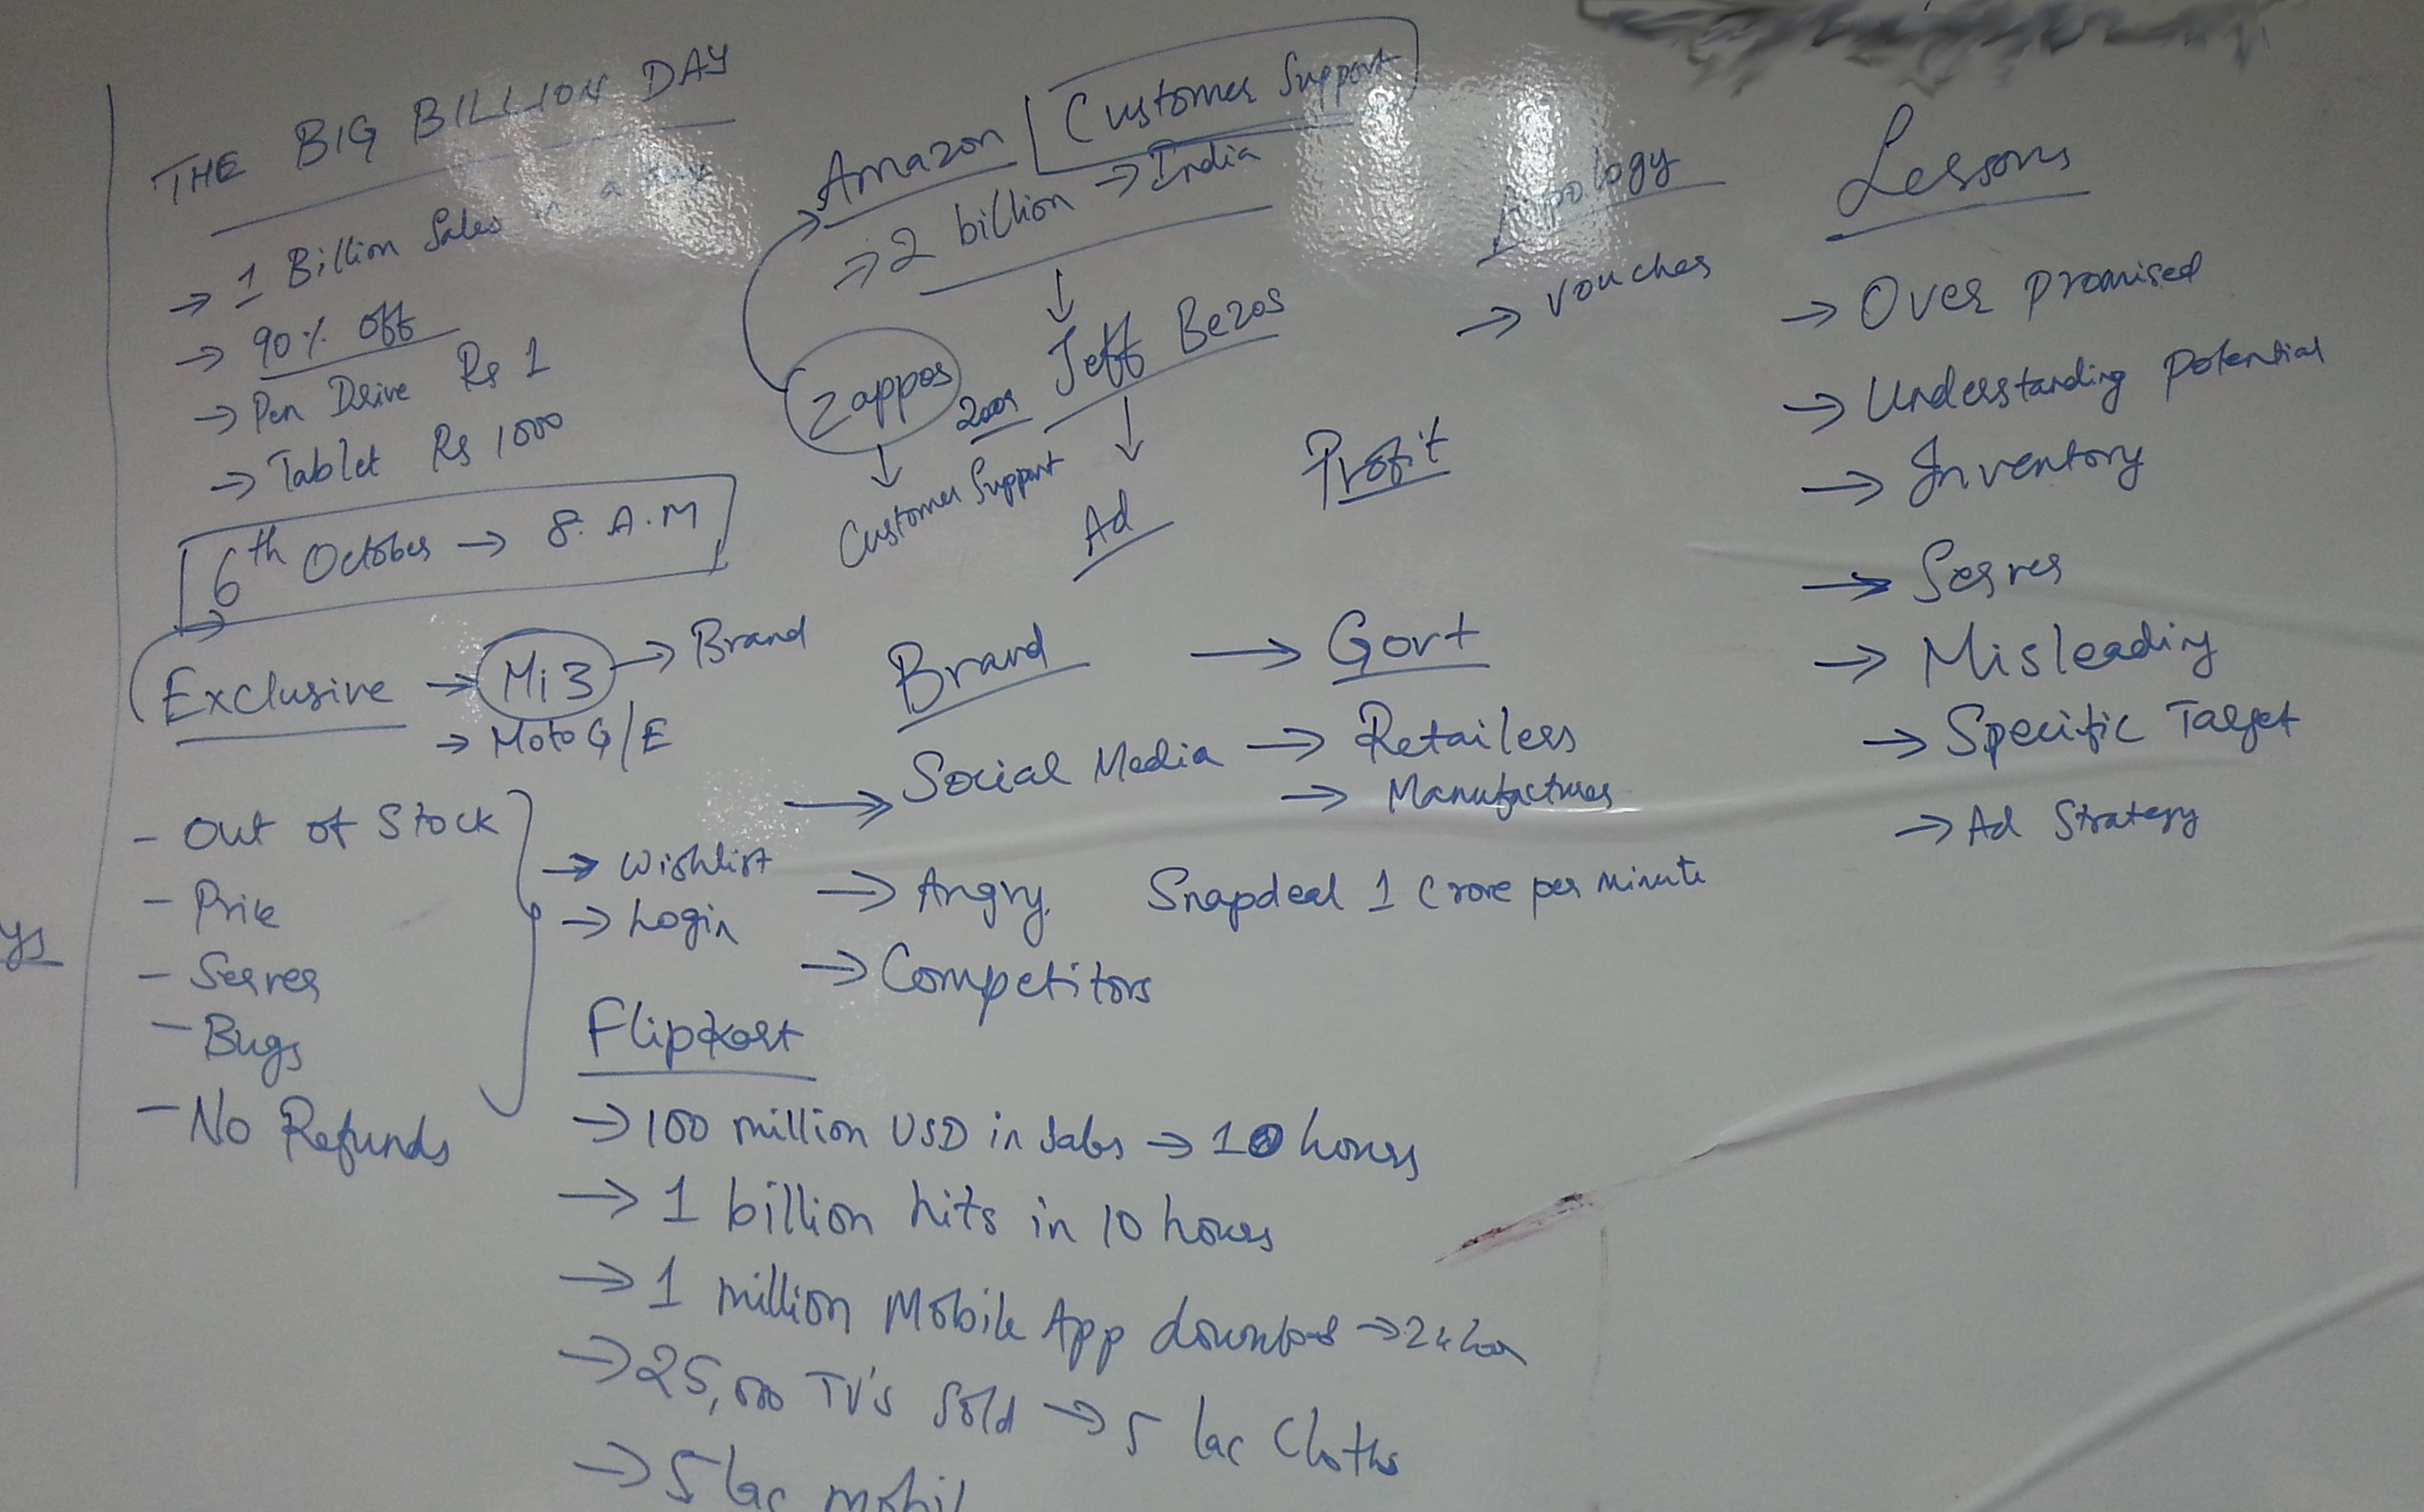 THE BIG BILLION DAY
→ 1 Billion Sales in a day
→ 90% Off
→ Pen Drive Rs 1
→ Tablet Rs 1000
6th October → 8. A.M
Exclusive → Mi3 → Brand
→ Moto G/E
- Out of Stock
- Price
- Server
- Bugs
- No Refunds
→ Wishlist
→ Login
ys
Amazon Customer Support
→ 2 billion → India
↓
Zappos 2009 Jeff Bezos
↓ ↓
Customer Support Ad
Profit
Apology
→ Voucher
Brand → Govt
→ Social Media → Retailers
→ Manufactures
→ Angry. Snapdeal 1 Crore per minute
→ Competitors
Flipkart
→ 100 million USD in Sales → 10 hours
→ 1 billion hits in 10 hours
→ 1 million Mobile App → 24
→ 25,000 TV's Sold → 5 lac Cloths
→ 5 lac mobil
Lessons
→ Over promised
→ Understanding Potential
→ Inventory
→ Server
→ Misleading
→ Specific Target
→ Ad Strategy